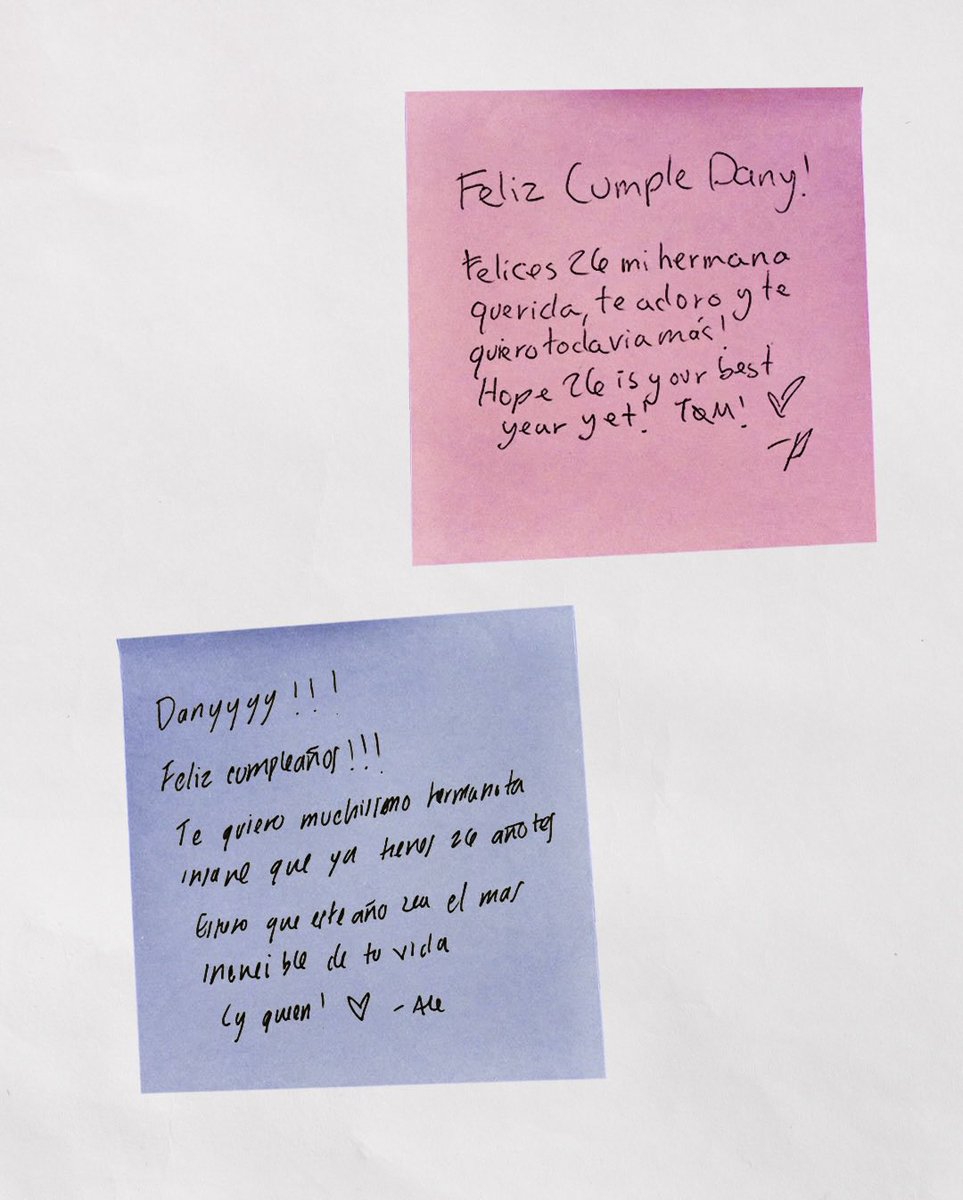 Feliz Cumple Dany!
Felices 26 mi hermana
querida, te adoro y te
quiero todavia más!
Hope 26 is your best
year yet! TQM! ♡
-P
Danyyyy!!!
Feliz cumpleaños!!!
Te quiero muchissimo hermanita
insane que ya tienes 26 añotes
Espero que este año sea el mas
increible de tu vida
Ly queen! ♡ -Ale